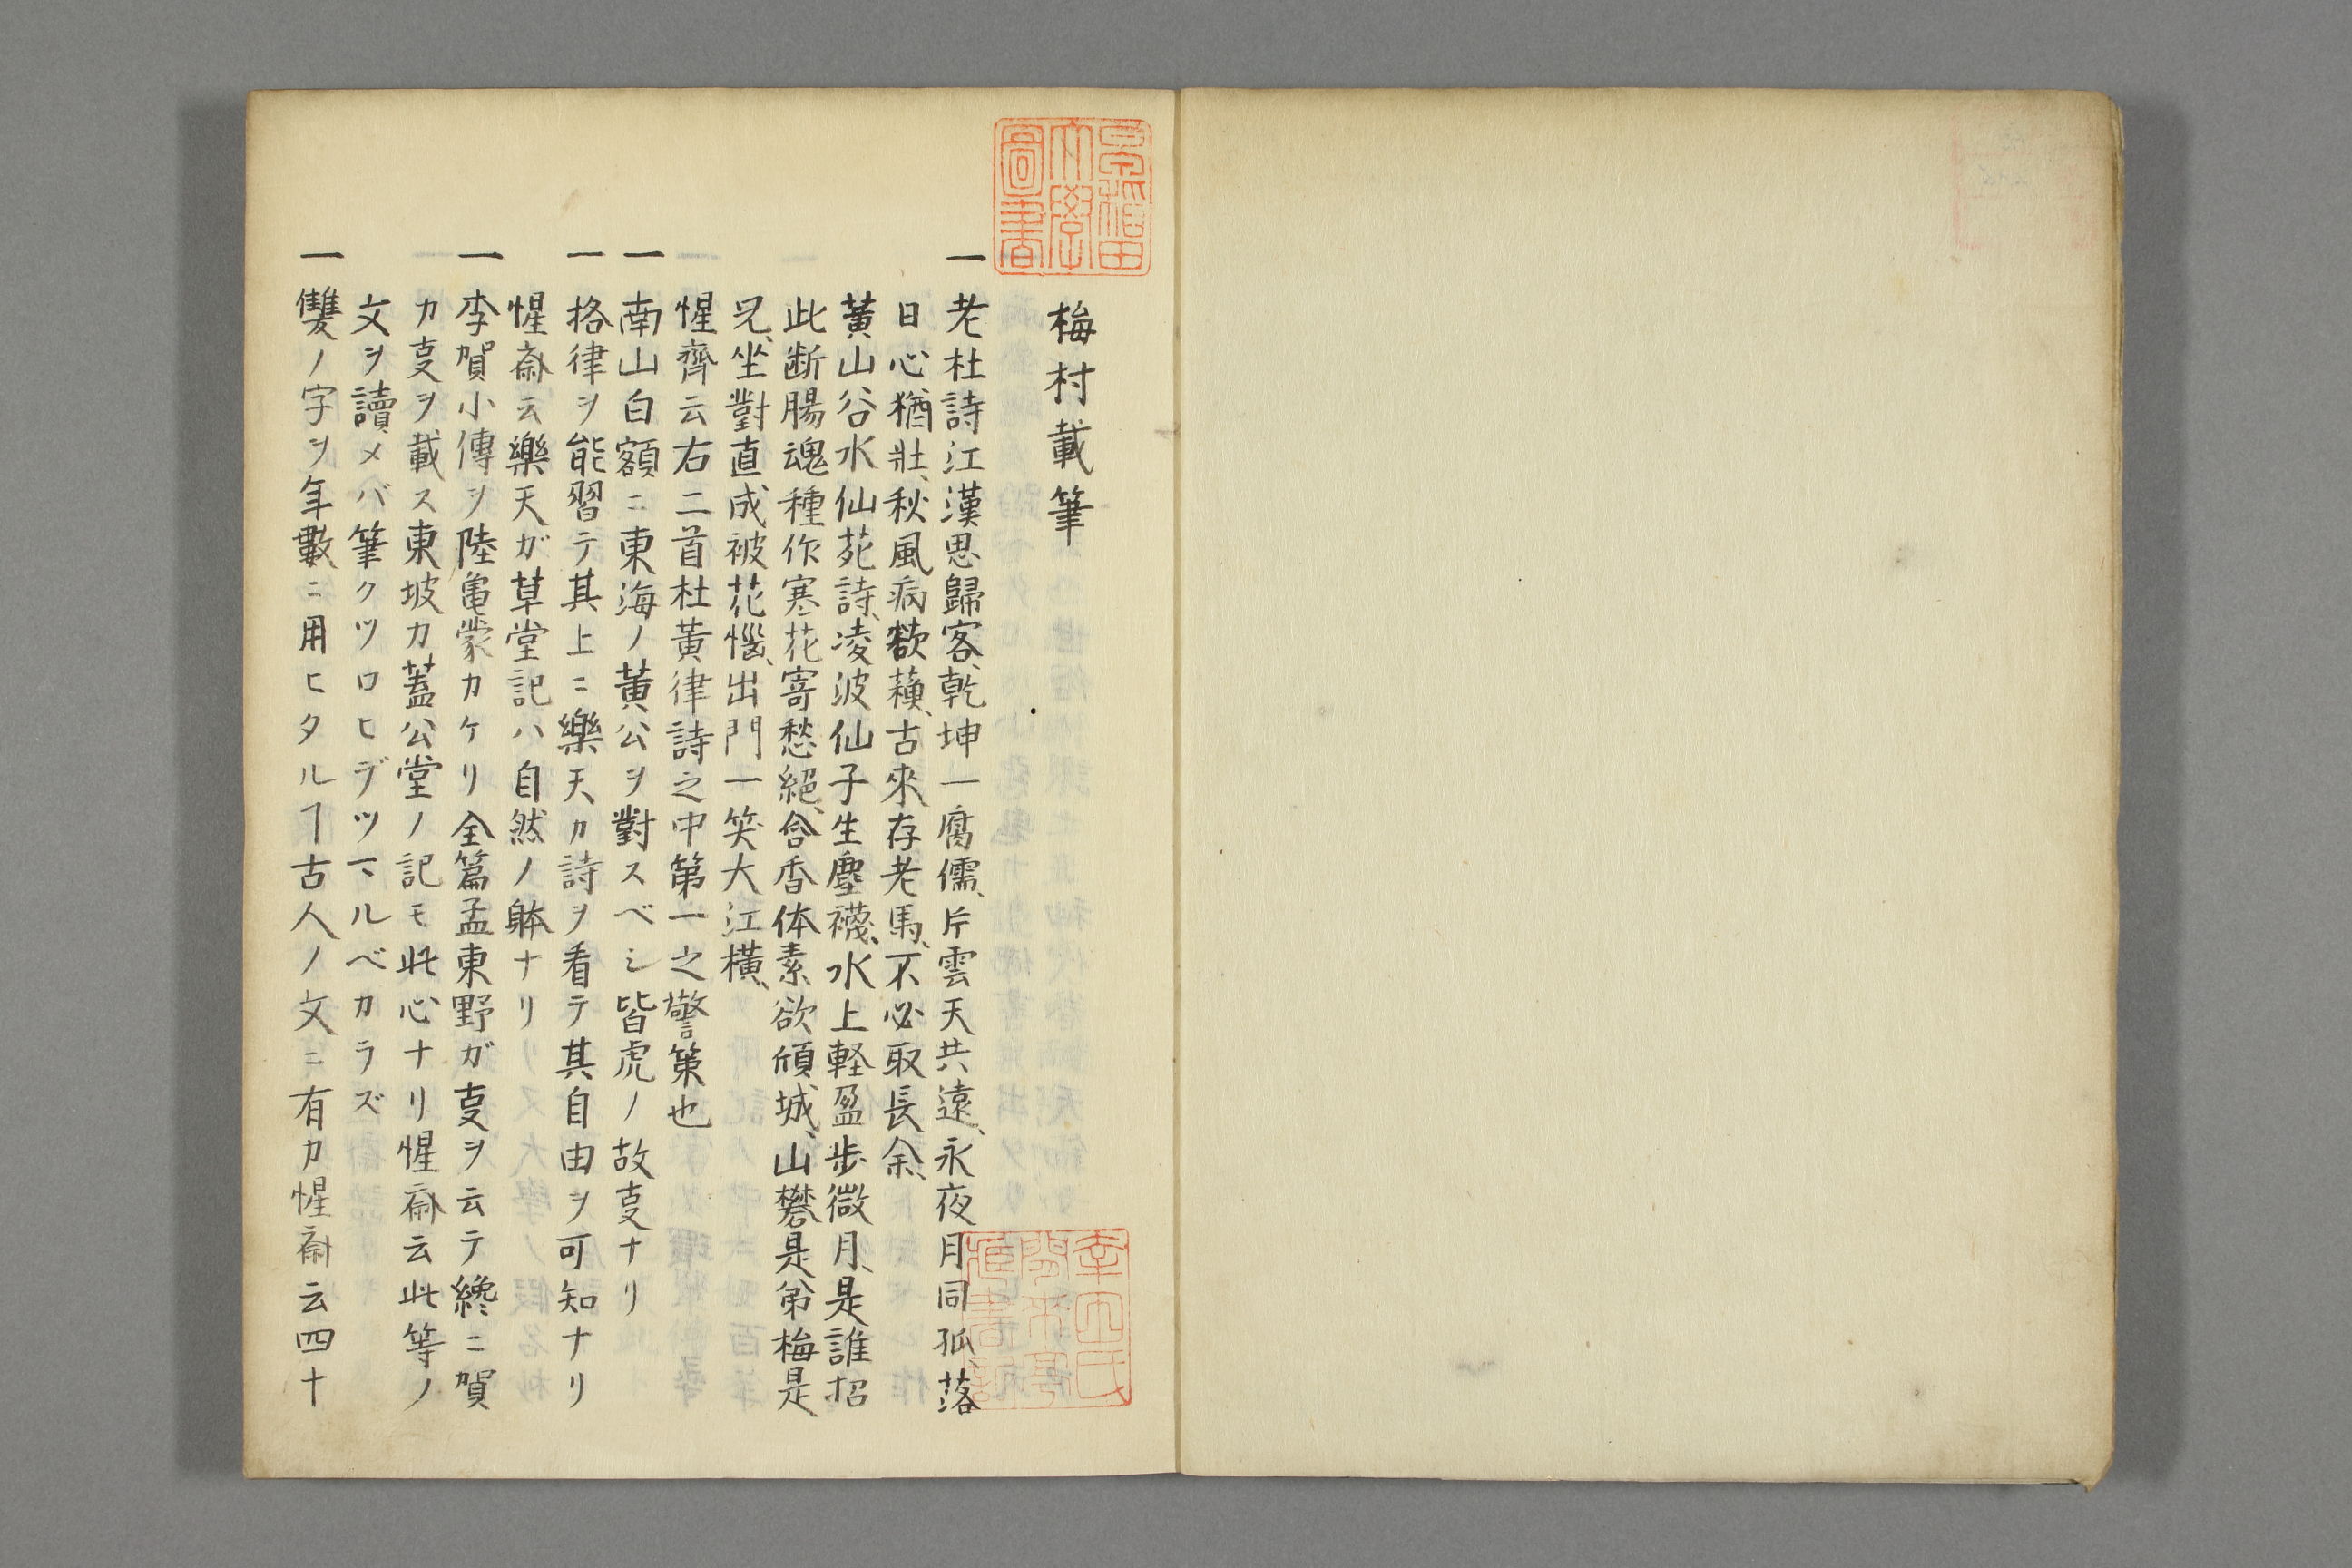 早稲田
大學
圖書
梅村載筆
一老杜詩江漢思歸客、乾坤一腐儒、片雲天共遠、永夜月同孤、落
日心猶壯、秋風病欲蘓、古來存老馬、不必取長余、
黃山谷水仙花詩、凌波仙子生塵襪、水上軽盈步微月、是誰招
此断腸魂種作寒花寄愁絕、含香体素欲傾城、山礬是弟梅是
兄、坐對直成被花惱、出門一笑大江橫、
惺齊云右二首杜黃律詩之中第一之警策也
一南山白額ニ東海ノ黃公ヲ對スベシ皆虎ノ故叓ナリ
一格律ヲ能習テ其上ニ樂天カ詩ヲ看テ其自由ヲ可知ナリ
惺斎云樂天ガ草堂記ハ自然ノ躰ナリ
一李賀小傳ヲ陸亀蒙カケリ全篇孟東野ガ叓ヲ云テ纔ニ賀
カ叓ヲ載ス東坡カ蓋公堂ノ記モ此心ナリ惺斎云此等ノ
文ヲ讀メバ筆クツロヒデツマルベカラズ
一雙ノ字ヲ年數ニ用ヒタルヿ古人ノ文ニ有カ惺斎云四十